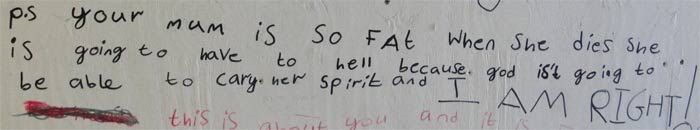 p.s your mum is so FAt when she dies she
is going to have to hell because. god is't going to
be able to cary. her spirit and I AM RIGHT!
this is about you and it is